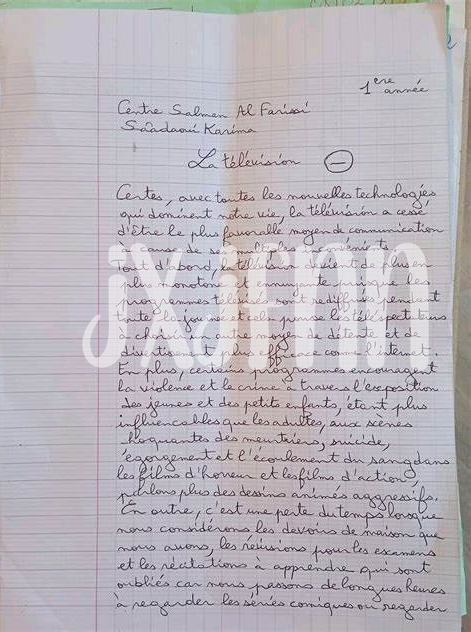 1 ere année
Centre Salmen Al Farissi
Saâdaoui Karima
La télévision (-)
Certes, avec toutes les nouvelles technologies
qui dominent notre vie, la télévision a cessé
d'Etre le plus favorable moyen de communication
à cause de ses multiples inconvénients.
Tout d'abord, la télévision devient de plus en
plus monotone et ennuyante puisque les
programmes télévisés sont rediffusés pendant
toute la journée et cela pousse les téléspectateurs
à choisir un autre moyen de détente et de
divertissement plus efficace comme l'internet.
En plus, certains programmes encouragent
la violence et le crime à travers l'exposition
des jeunes et des petits enfants, étant plus
influençables que les adultes, aux scènes
choquantes des meurtriers, suicide,
égorgement et l'écoulement du sang dans
les films d'horreur et les films d'action
parlons plus des dessins animés aggressifs.
En outre, c'est une perte du temps lorsque
nous considérons les devoirs de maison que
nous avons, les révisions pour les examens
et les récitations à apprendre qui sont
oubliés car nous passons de longues heures
à regarder les séries comiques ou regarder